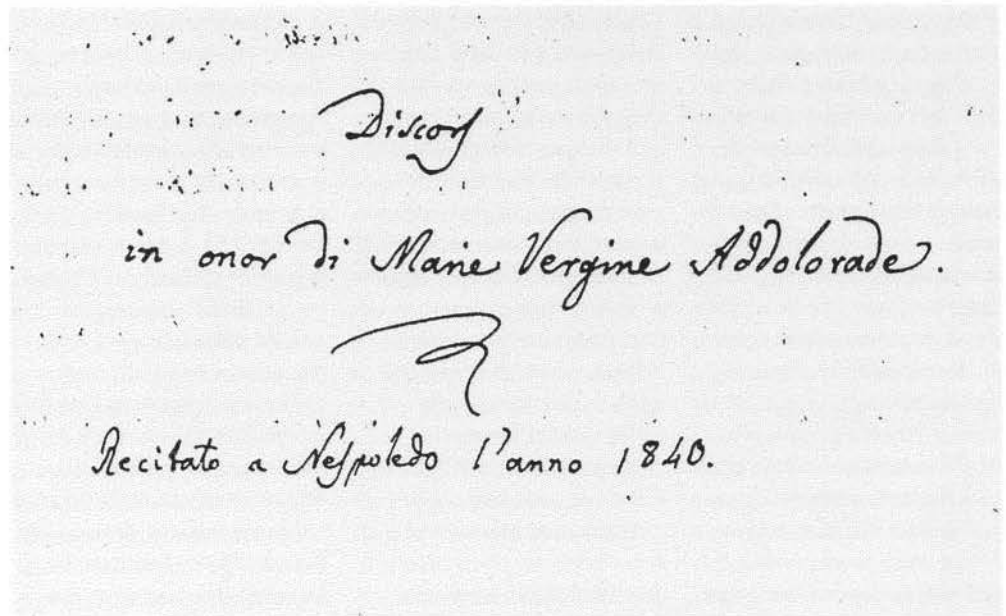 Discors
in onor di Marie Vergine Addolorade.
Recitato a Nespoledo l'anno 1840.